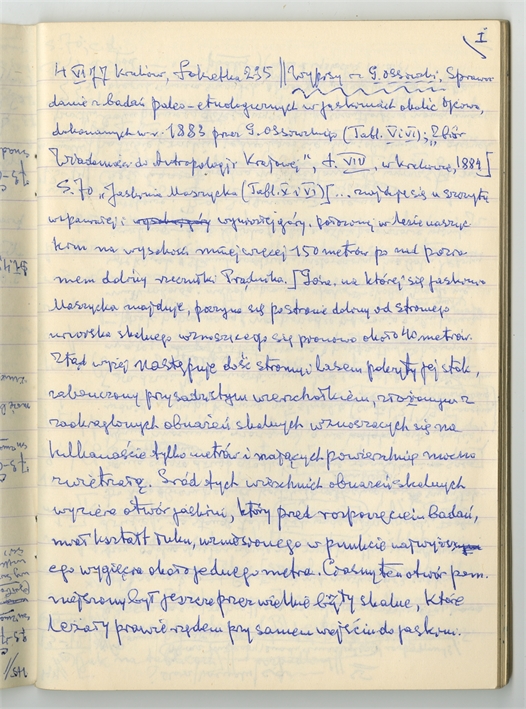 I
4 VI 77 Kraków, Sokretka 235 || Wypisy z G. Ossowski, Sprawoz
danie z badań paleo-etnologicznych w jaskiniach okolic Ojcowa,
dokonanych w r. 1883 przez G. Ossowskiego (Tabl. V i VI); „Zbiór
Wiadomości do Antropologii Krajowej", t. VIII, w Krakowie, 1884]
S. 70 „Jaskinia Maszycka (Tabl. X i VI) [... znajduje się u szczytu
wspaniałej i wyniosłej góry, położonej w lesie maszyc
kim na wysokości mniej więcej 150 metrów po nad pozio
mem doliny rzeczułki Prądnika. [Góra, na której się jaskinia
Maszycka znajduje, poczyna się po stronie doliny od stromego
urwiska skalnego wznoszącego się pionowo około 40 metrów.
Ztąd wyżej następuje dość stromy i lasem pokryty jej stok,
zakończony przysadzistym wierzchołkiem, złożonym z
zaokrąglonych obnażeń skalnych wznoszących się na
kilkanaście tylko metrów i mających powierzchnię mocno
zwietrzałą. Śród tych wierzchnich obnażeń skalnych
wyziera otwór jaskini, który przed rozpoczęciem badań,
miał kształt łuku, wzniesionego w punkcie najwyższ
ego wygięcia około jednego metra. Ciasny ten otwór pom
niejszony był jeszcze przez wielkie bryły skalne, które
leżały prawie rzędem przy samem wejściu do jaskini.